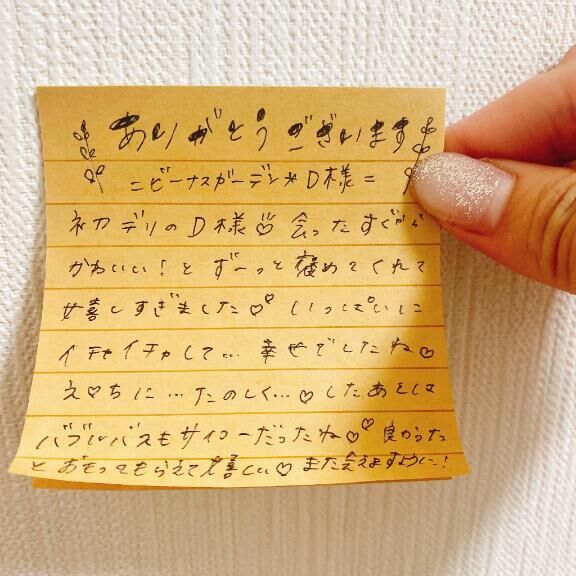 ありがとうございます
=ビーナスガーデン★D様=
初デリのD様♡会ったすぐから
かわいい!とずーっと褒めてくれて
嬉しすぎました♡♡いっぱいに
イチャイチャして…幸せでしたね♡
え♡ちに…たのしく…♡したあとは
バブルバスもサイコーだったね♡♡良かった
とおもってもらえて嬉しい♡また会えますように!